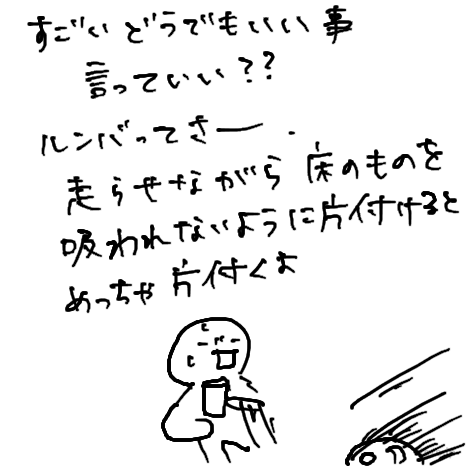 すごいどうでもいい事
言っていい??
ルンバってさー.
走らせながら床のものを
吸われないように片付けると
めっちゃ片付くよ